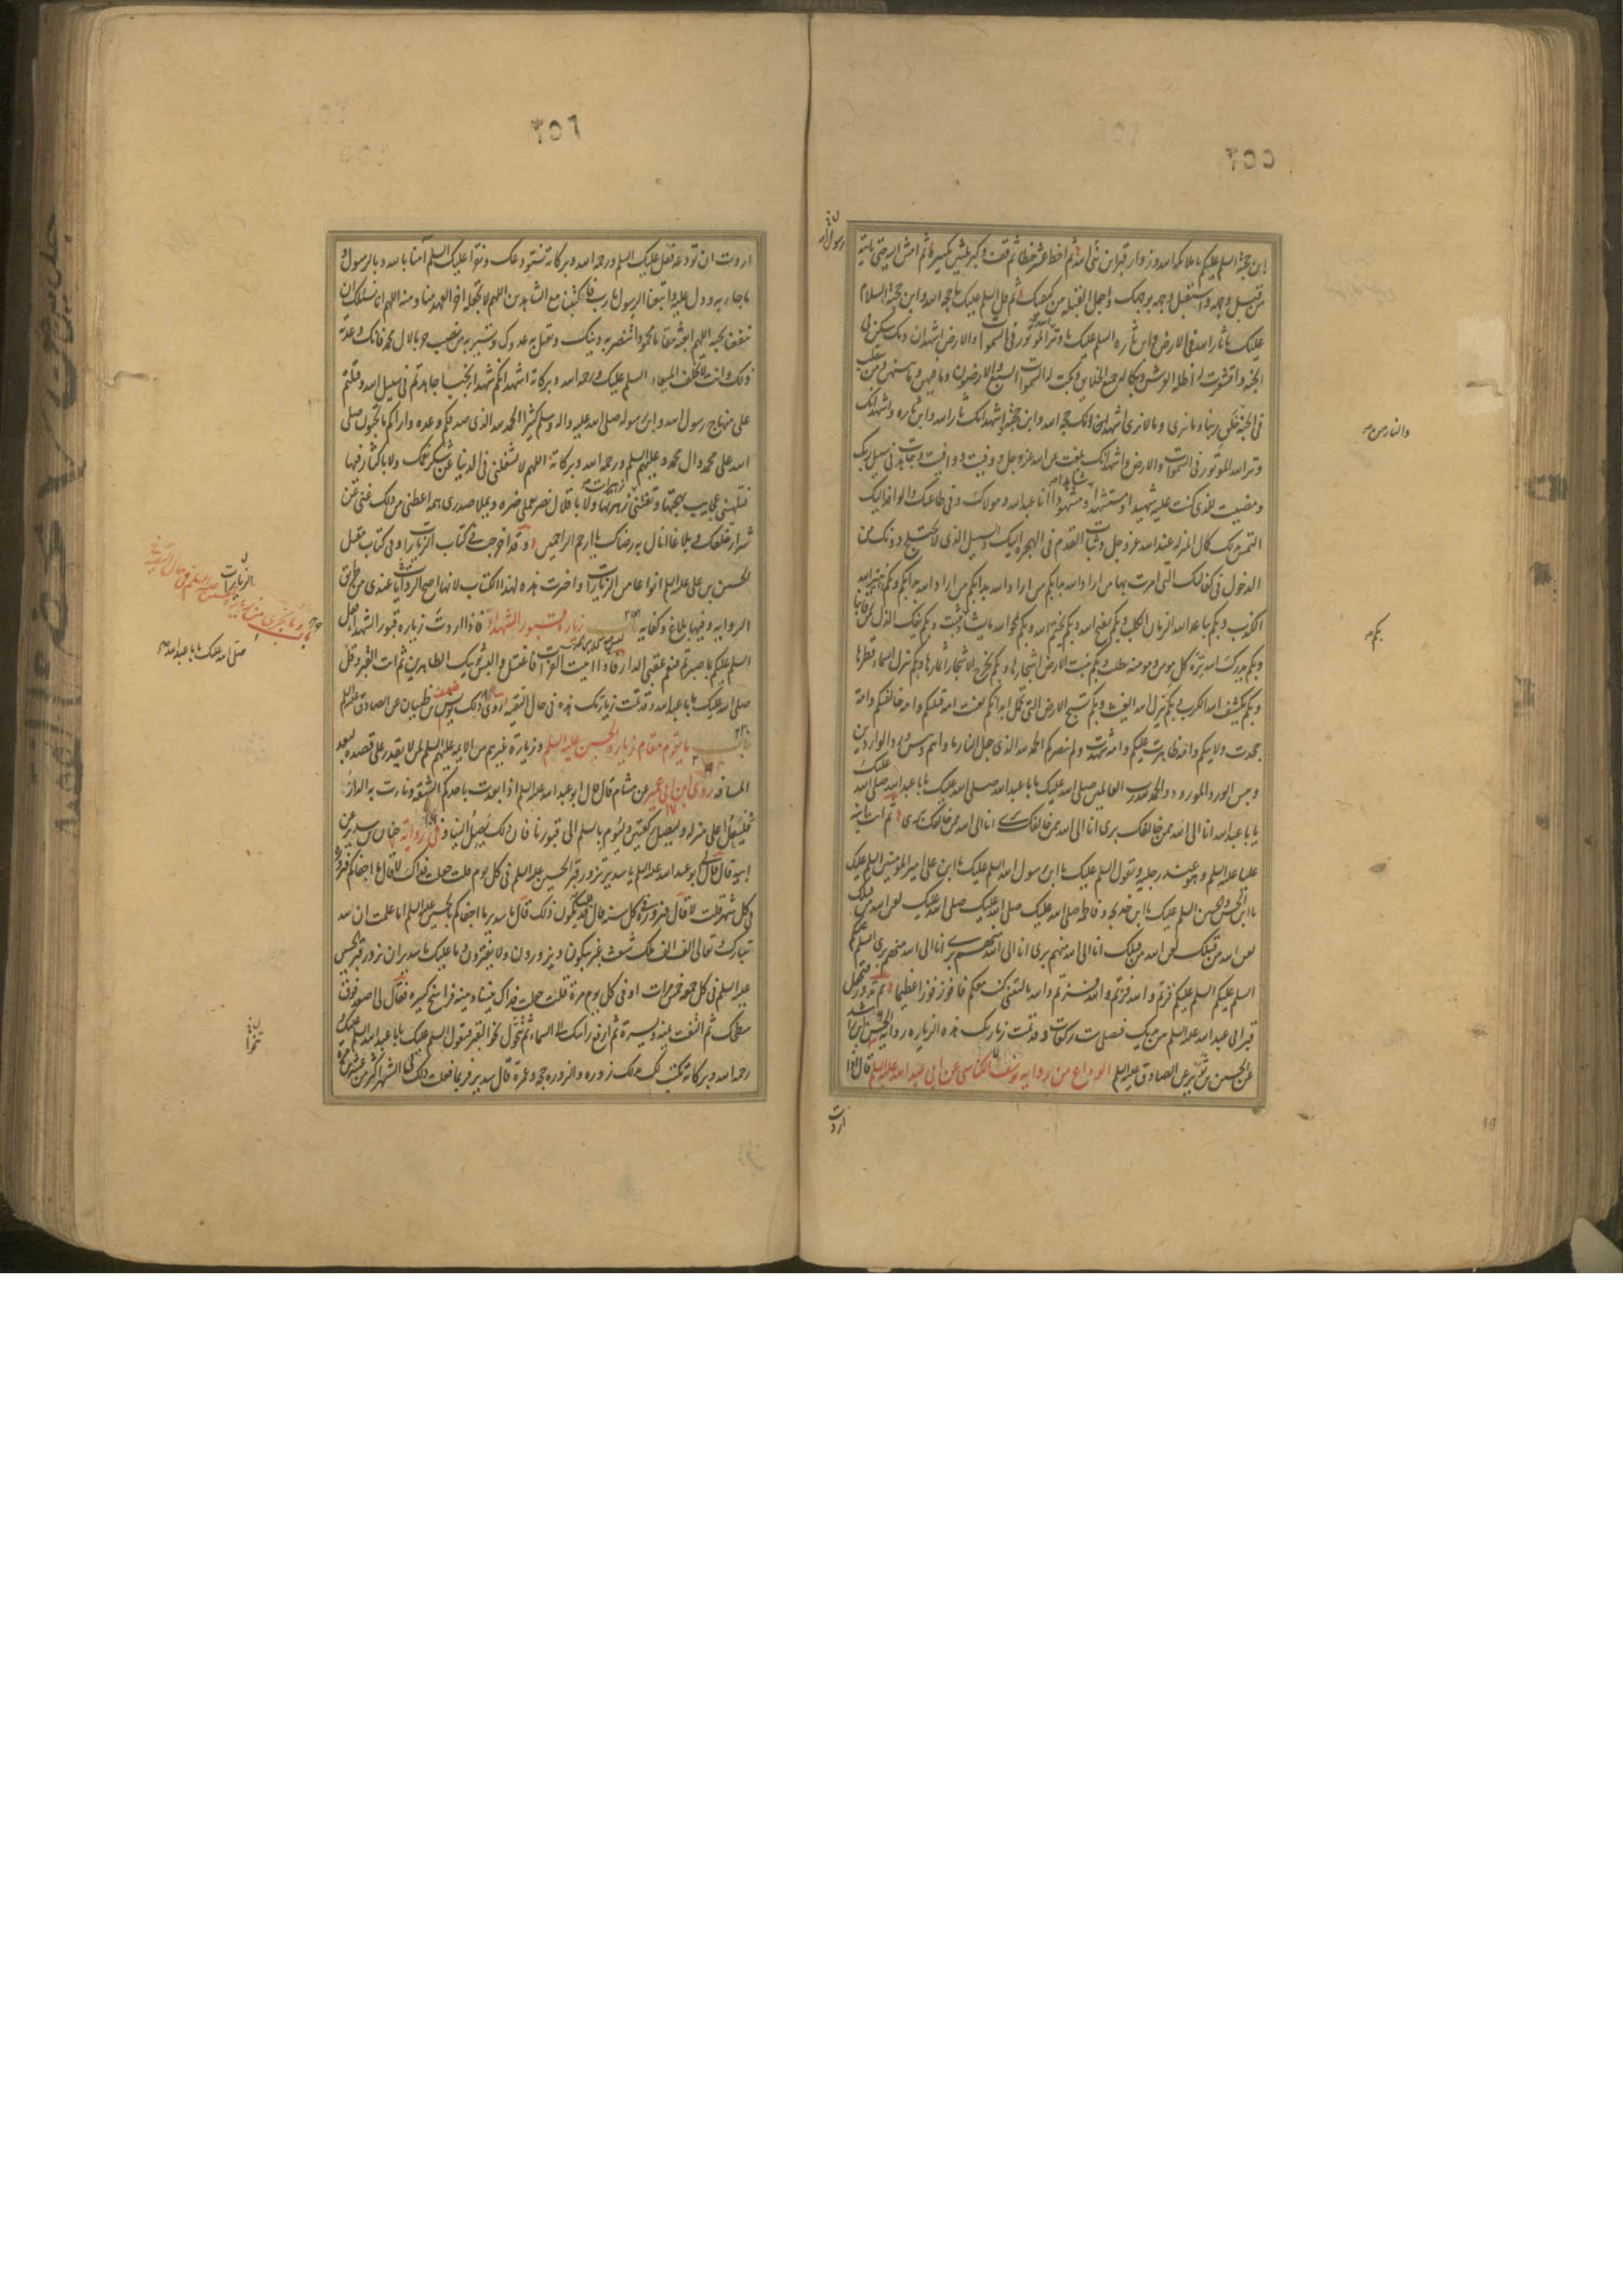 ٣٥٥
ابن حجته السلم عليكم يا ملائكة الله وزوار قبر ابن نبي الله ثم اخط عشر خطا ثم قف وكبر ثلثين تكبيرة ثم امش اليه حتى تاتيه
من قبل وجهه واستقبل وجهه بوجهك واجعل القبلة بين كتفيك ثم قل السلم عليك يا حجة الله وابن حجته السلام
عليك يا ثار الله في الارض وابن ثاره السلم عليك يا وتر الله الموتور في السموات والارض اشهد ان دمك سكن في
الخلد واقشعرت له اظلة العرش وبكا له جميع الخلايق وبكت له السموات السبع والارضون وما فيهن وما بينهن ومن يتقلب
في الجنة والنار من خلق ربنا وما يرى وما لا يرى اشهد انك حجة الله وابن حجته واشهد انك ثار الله وابن ثاره واشهد انك
وتر الله الموتور في السموات والارض واشهد انك بلغت عن الله عز وجل ووفيت ووافيت وجاهدت في سبيل ربك
ومضيت للذي كنت عليه شهيدا ومستشهدا وشاهدا ومشهودا انا عبد الله ومولاك وفي طاعتك والوافد اليك
التمس بذلك كمال المنزلة عند الله عز وجل وثبات القدم في الهجرة اليك والسبيل الذي لا يختلج دونك من
الدخول في كفالتك التي امرت بها من اراد الله بدا بكم من اراد الله بدا بكم من اراد الله بدا بكم وبكم يبين الله
الكذب وبكم يباعد الله الزمان الكلب وبكم يفتح الله وبكم يختم الله وبكم يمحو الله ما يشاء وبكم يثبت وبكم يفك الذل من رقابنا
وبكم يدرك الله ترة كل مومن ومومنة يطلب وبكم تنبت الارض اشجارها وبكم تخرج الاشجار اثمارها وبكم تنزل السماء قطرها
وبكم يكشف الله الكرب وبكم ينزل الله الغيث وبكم تسبح الارض التي تحمل ابدانكم لعنت امة قتلتكم وامة خالفتكم وامة
جحدت ولايتكم وامة ظاهرت عليكم وامة شهدت ولم تنصركم الحمد لله الذي جعل النار ماواهم وبئس ورد الواردين
وبئس الورد المورود والحمد لله رب العالمين صلى الله عليك يا ابا عبد الله صلى الله عليك يا ابا عبد الله صلى الله عليك
يا ابا عبد الله انا الى الله ممن خالفك بري انا الى الله ممن خالفك بري انا الى الله ممن خالفك بري ثم ات ابنه
عليا عليه السلم وهو عند رجليه وتقول السلم عليك يا ابن رسول الله السلم عليك يا ابن علي امير المومنين السلم عليك
يا ابن الحسن والحسين السلم عليك يا ابن خديجة وفاطمة صلى الله عليك صلى الله عليك صلى الله عليك لعن الله من قتلك
لعن الله من قتلك لعن الله من قتلك انا الى الله منهم بري انا الى الله منهم بري انا الى الله منهم بري السلم عليكم
السلم عليكم السلم عليكم فزتم والله فزتم والله فزتم والله يا ليتني كنت معكم فافوز فوزا عظيما ثم تدور فتجعل
قبر ابي عبد الله عليه السلم بين يديك فصلي ست ركعات وقد تمت زيارتك هذه الزيارة رواية الحسن بن راشد
عن الحسين بن ثوير عن الصادق عليه السلم الوداع من رواية يوسف الكناسي عن ابي عبد الله عليه السلم قال اذا
اردت
رسول الله
والنار من
بكم
٣٥٦
اردت ان تودعه فقل السلم عليك ورحمة الله وبركاته نستودعك ونقرا عليك السلم آمنا بالله وبالرسول و
ما جاء به ودل عليه واتبعنا الرسول يا رب فاكتبنا مع الشاهدين اللهم لا تجعله اخر العهد منا ومنه اللهم انا نسئلك ان
تنفعنا بحبه اللهم ابعثه مقاما محمودا تنصر به دينك وتقتل به عدوك وتبير به من نصب حربا لال محمد فانك وعدته
ذلك وانت لا تخلف الميعاد السلم عليك ورحمة الله وبركاته اشهد انكم شهداء نجباء جاهدتم في سبيل الله وقتلتم
على منهاج رسول الله وابن رسوله صلى الله عليه واله وسلم كثيرا الحمد لله الذي صدقكم وعده واراكم ما تحبون صلى
الله على محمد وال محمد وعليهم السلم ورحمة الله وبركاته اللهم لا تشغلني في الدنيا عن شكر نعمتك ولا باكثار فيها
فتلهيني عجايب بهجتها وتفتنني زهرتها ولا باقلال يضر بعملي ضره ويملا صدري همه اعطني من ذلك غنى عن
شرار خلقك وبلاغا انال به رضاك يا ارحم الراحمين وقد اخرجت في كتاب الزيارات وفي كتاب مقتل
الحسين بن علي عليه السلم انواعا من الزيارات واخترت هذه لهذا الكتاب لانها اصح الروايات عندي من طريق
الرواية وفيها بلاغ وكفاية باب زيارة قبور الشهداء فاذا اردت زيارة قبور الشهداء فقل
السلم عليكم بما صبرتم فنعم عقبى الدار فاذا اتيت الفرات فاغتسل والبس ثوبيك الطاهرين ثم ات القبر وقل
صلى الله عليك يا ابا عبد الله وقد تمت زيارتك هذه في حال التقية روى ذلك يونس بن ظبيان عن الصادق عليه السلم
باب ما يقوم مقام زيارة الحسين عليه السلم وزيارة غيره من الايمة عليهم السلم لمن لا يقدر على قصده لبعد
المسافة روى ابن ابي عمير عن هشام قال قال ابو عبد الله عليه السلم اذا بعدت باحدكم الشقة ونات به الدار
فليعل اعلى منزله وليصل ركعتين وليوم بالسلم الى قبورنا فان ذلك يصل الينا وفي رواية حنان بن سدير عن
ابيه قال قال لي ابو عبد الله عليه السلم يا سدير تزور قبر الحسين عليه السلم في كل يوم قلت جعلت فداك لا قال ما اجفاكم فتزوره
في كل شهر قلت لا قال فتزوره في كل سنة قال قد يكون ذلك قال يا سدير ما اجفاكم بالحسين عليه السلم اما علمت ان لله
تبارك وتعالى الف الف ملك شعث غبر يبكون ويزورون ولا يفترون وما عليك يا سدير ان تزور قبر الحسين
عليه السلم في كل جمعة خمس مرات او في كل يوم مرة قلت جعلت فداك بيننا وبينه فراسخ كثيرة فقال لي اصعد فوق
سطحك ثم التفت يمنة ويسرة ثم ارفع راسك الى السماء ثم تحول نحو القبر فتقول السلم عليك يا ابا عبد الله السلم عليك و
رحمة الله وبركاته تكتب لك بذلك زورة والزورة حجة وعمرة قال سدير فربما فعلت ذلك في الشهر اكثر من عشرين مرة
الزيارات
باب ما يجزي من زيارة الحسين عليه السلم في حال التقية
صلى الله عليك يا ابا عبد الله